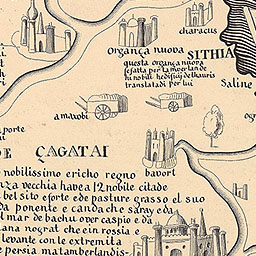 characus
Organça nuova
SITHIA
questa organça nuova
fe fatta per tamberlan de
Saline
translatadi per lui
amaxobi
porte
ri
DE ÇAGATAI
bavort
nobilissimo e richo regno
vecchia have a 12 nobile citade
bel sito e forte de pasture grasso el suo
da ponente e canda che saray e da
mar de bachu over caspio e da
che ein rossia e
levante con le extremita
persia ma tamberlan